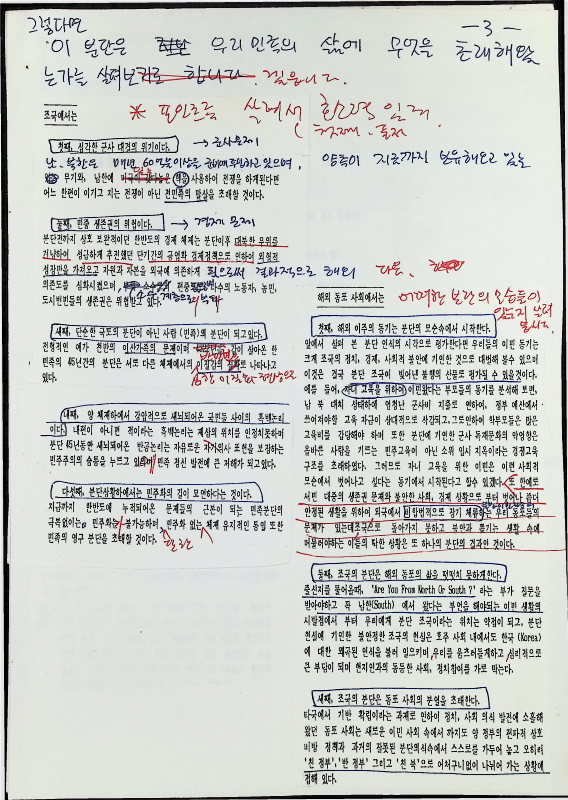 그렇다면
- 3 -
이 분단은 우리 민족의 삶에 무엇을 초래해왔
는가를 살펴보기로 합니다.
조국에서는
* 포인트를 살려서
첫째. 둘째
첫째, 심각한 군사 대결의 위기이다.
→ 군사문제
남·북한은 매년 60억불이상을 군비에 투입하고 있으며,
양측이 지금까지 보유해오고 있는
무기와, 남한에 핵을 사용하여 전쟁을 하게된다면
어느 한편이 이기고 지는 전쟁이 아닌 전민족의 말살을 초래할 것이다.
둘째, 민중 생존권의 위협이다.
→ 경제 문제
분단전까지 상호 보완적이던 한반도의 경제 체제는 분단이후 대북한 우위를
겨냥하여 성급하게 추진했던 단기간의 공업화 경제정책으로 인하여 외형적
성장만을 가져오고 자원과 자본을 외국에 의존하게 됨으로써 결과적으로 해외
의존도를 심화시켰으며 다수의 노동자, 농민,
도시빈민들의 생존권을 위협받고 있다.
세째, 단순한 국토의 분단이 아닌 사람 (민족)의 분단이 되고있다.
전형적인 예가 천만의 이산가족의 문제이며 같이 살아온 한
민족의 45년간의 분단은 서로 다른 체제에서의 이질감의 나타나고
있다.
심한 이질화 현상으로
네째, 양 체제하에서 강압적으로 세뇌되어온 국민들 사이의 흑백논리
이다. 내편이 아니면 적이라는 흑백논리는 제삼의 위치를 인정치못하며
분단 45년동안 세뇌되어온 반공논리는 자유로운 자기의사 표현을 보장하는
민주주의의 숨통을 누르고 있으며 민족 정신 발전에 큰 저해가 되고있다.
다섯째, 분단상황하에서는 민주화의 길이 요면하다는 것이다.
지금까지 한반도에 누적되어온 문제들의 근본이 되는 민족분단의
극복없이는 민주화는 불가능하며, 민주화 없는 체제 유지적인 통일 또한
민족의 영구 분단을 초래할 것이다.
다음,
해외 동포 사회에서는
어떠한 분단의 모습들이
있는지 살펴
봅시다.
첫째, 해외 이주의 동기는 분단의 모순속에서 시작한다.
앞에서 살펴 본 분단 인식의 시각으로 평가한다면 우리들의 이민 동기는
크게 조국의 정치, 경제, 사회적 불안에 기인한 것으로 대별해 볼수 있으며
이것은 결국 분단 조국이 빚어낸 불행의 산물로 평가될 수 있을것이다.
예를 들어, 자녀 교육을 위하여 이민왔다는 부모들의 동기를 분석해 보면,
남 북 대치 상태하에 엄청난 군사비 지출로 인하여, 정부 예산에서
쓰여져야할 교육 자금이 상대적으로 삭감되고, 그로인하여 학부모들은 많은
교육비를 감당해야 하며 또한 분단에 기인한 군사 독재문화의 악영향은
올바른 사람을 기르는 민주교육이 아닌 소위 입시 지옥이라는 경쟁교육
구조를 초래하였다. 그러므로 자녀 교육을 위한 이민은 이런 사회적
모순에서 벗어나고 싶다는 동기에서 시작된다고 할수 있겠다. 또 한예로
서민 대중의 생존권 문제와 불안한 사회, 경제 상황으로 부터 벗어나 좀더
안정된 생활을 위하여 외국에서 비합법적으로 장기 체류하는 우리 동포들의
문제가 있는데 조국으로 돌아가지 못하고 불안과 쫓기는 생활 속에
머물어야하는 이들의 딱한 상황은 또 하나의 분단의 결과인 것이다.
둘째, 조국의 분단은 해외 동포의 삶을 떳떳치 못하게한다.
출신지를 물어올때, 'Are You From North Or South ?' 라는 부가 질문을
받아야하고 꼭 남한(South) 에서 왔다는 부언을 해야되는 이민 생활의
시발점에서 부터 우리에게 분단 조국이라는 위치는 약점이 되고, 분단
현실에 기인한 불안정한 조국의 현실은 호주 사회 내에서도 한국 (Korea)
에 대한 왜곡된 인식을 불러 일으키며, 우리를 움츠러들게하고 심리적으로
큰 부담이 되며 현지인과의 동등한 사회, 정치참여를 가로 막는다.
세째, 조국의 분단은 동포 사회의 분열을 초래한다.
타국에서 기반 확립이라는 과제로 인하여 정치, 사회 의식 발전에 소홀해
왔던 동포 사회는 새로운 이민 사회 속에서 까지도 양 정부의 편파적 상호
비방 정책과 과거의 잘못된 분단의식속에서 스스로를 가두어 놓고 오히려
'친 정부', '반 정부' 그리고 '친 북'으로 어처구니없이 나뉘어 가는 상황에
접해 있다.